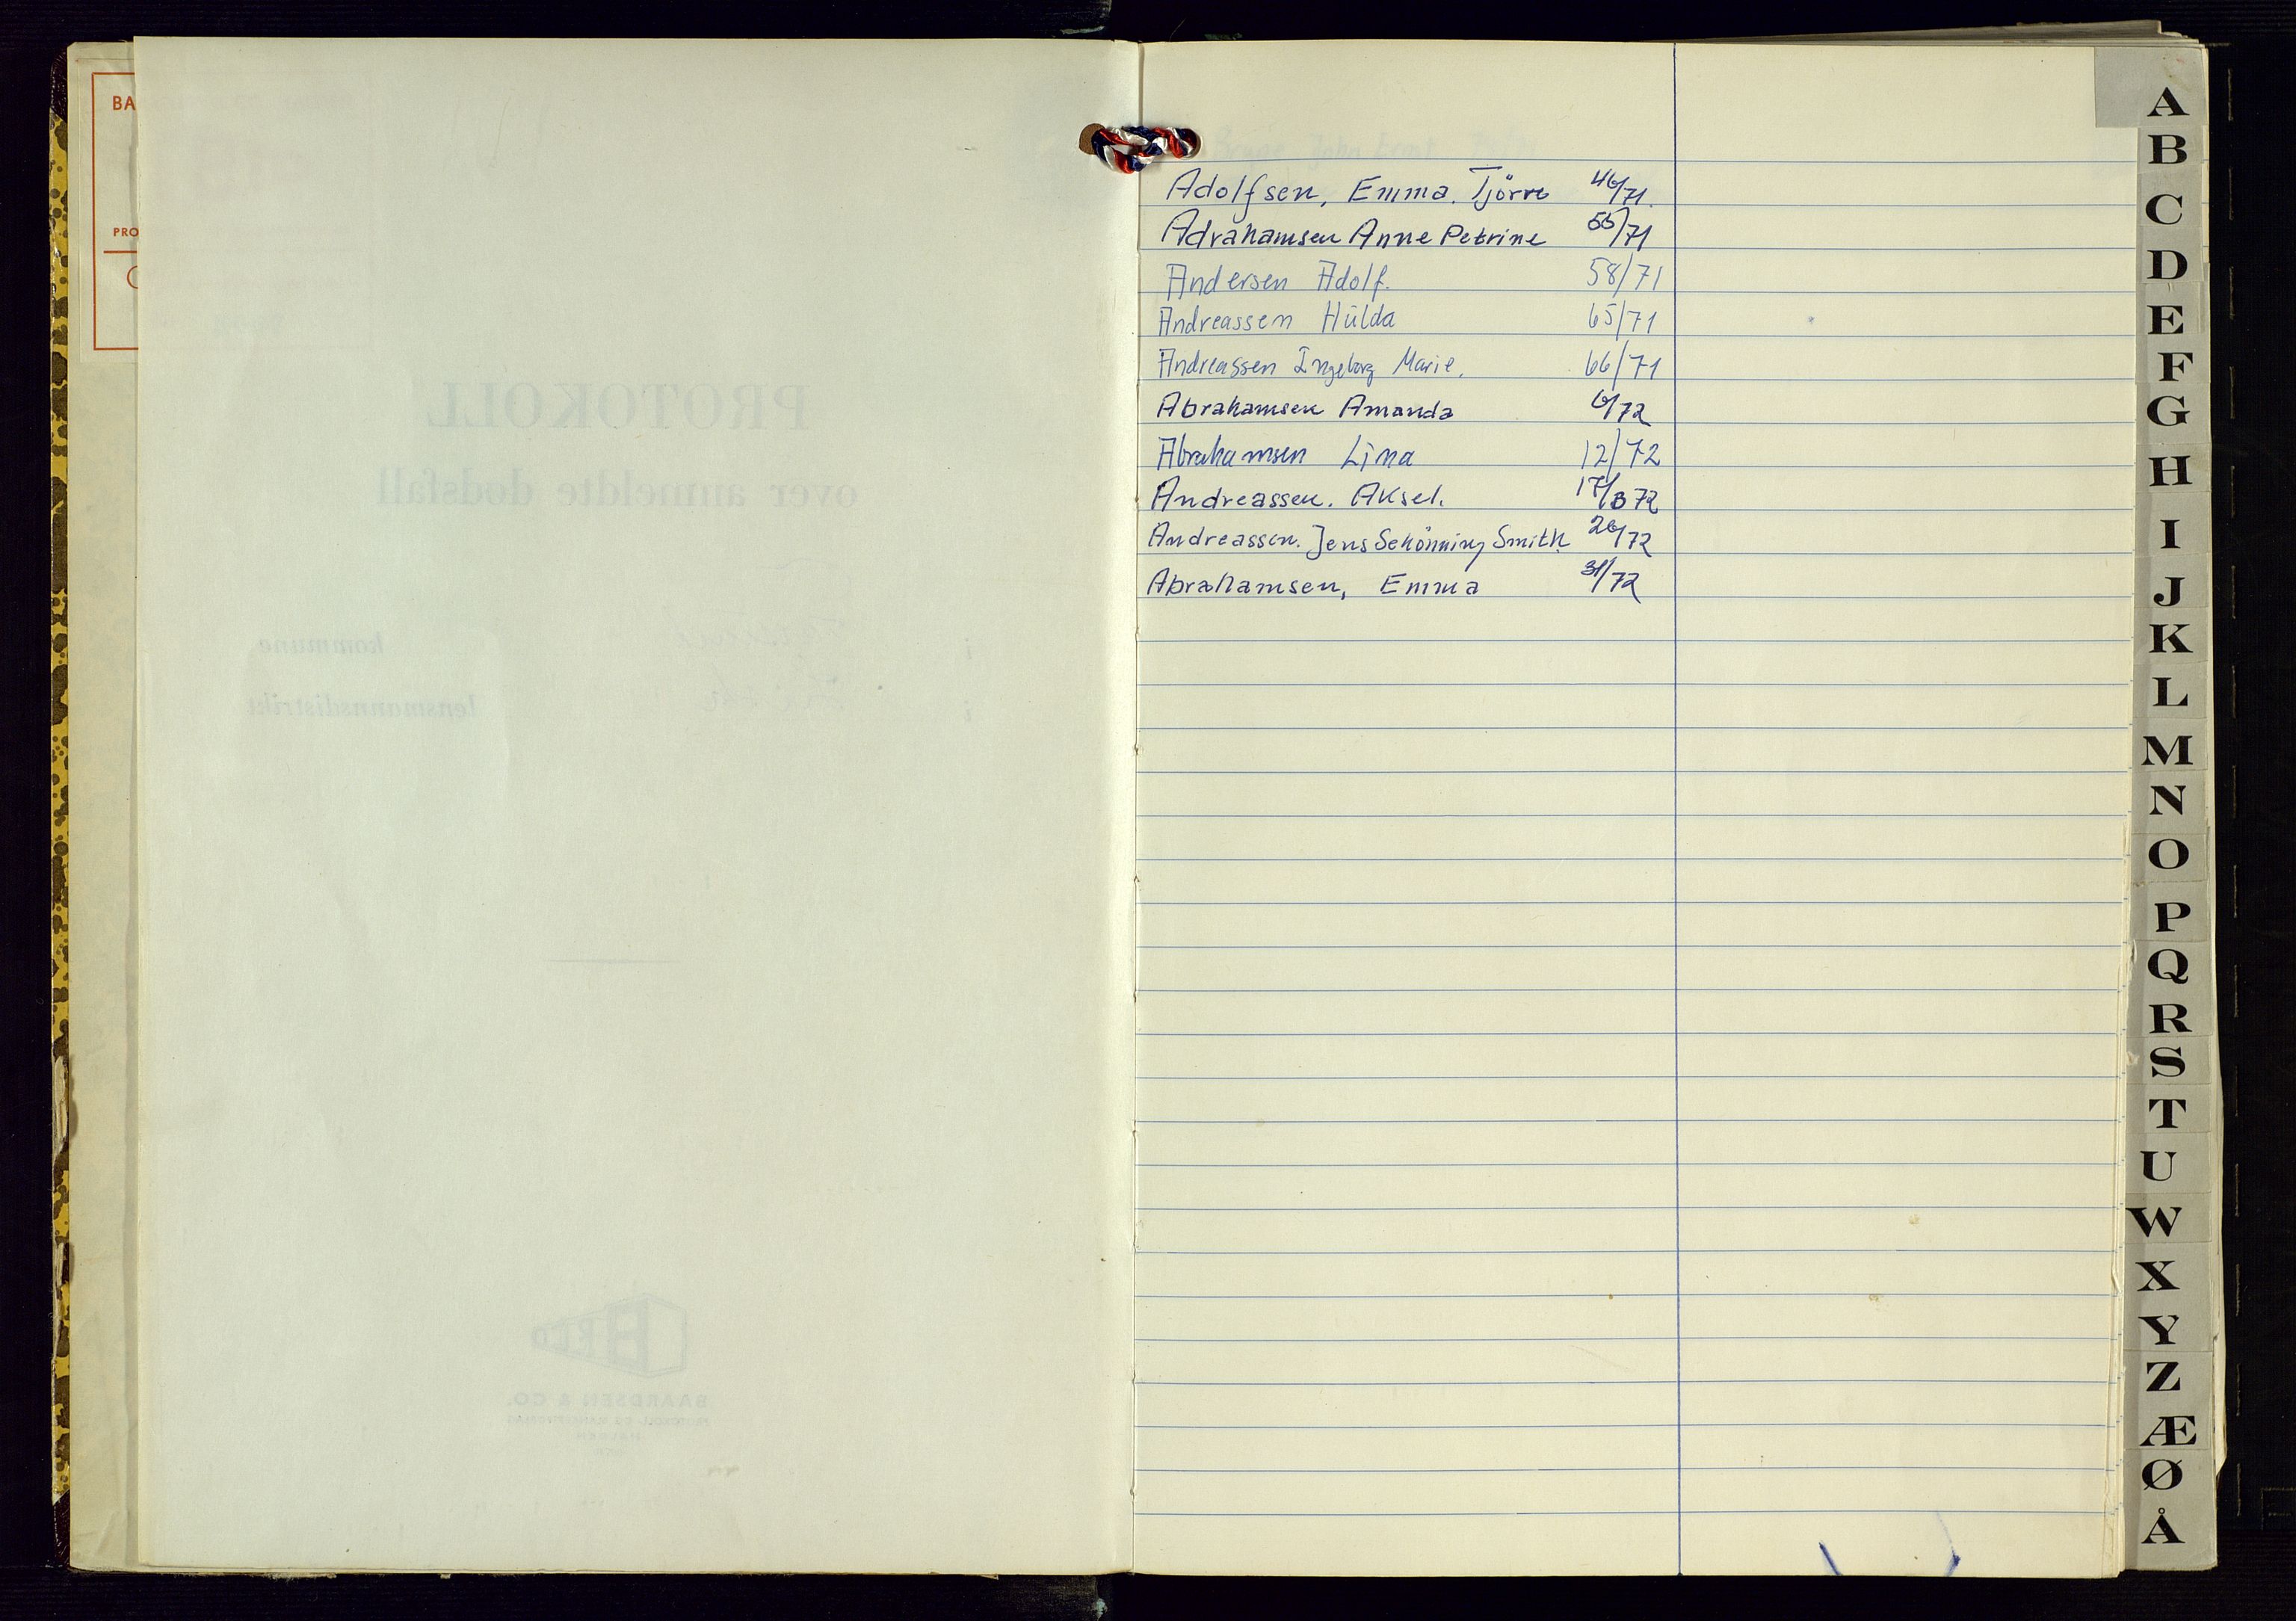 BA
PRO
PROTOKOLL
over anmeldte dødsfall
i kommune
i lensmannsdistrikt
BAARDSEN & CO.
HALDEN
Adolfsen, Emma. Tjörre 46/71.
Adrahamsen Anne Petrine 55/71
Andersen Adolf. 58/71
Andreassen Hulda 65/71
Andreassen Ingeborg Marie. 66/71
Abrahamsen Amanda 6/72
Abrahamsen Lina 12/72
Andreassen. Aksel. 17/B 72
Andreassen. Jens Schönning Smith 26/72
Abrahamsen, Emma 31/72
A
B
C
D
E
F
G
H
I
J
K
L
M
N
O
P
Q
R
S
T
U
W
X
Y
Z
Æ
Ø
Å